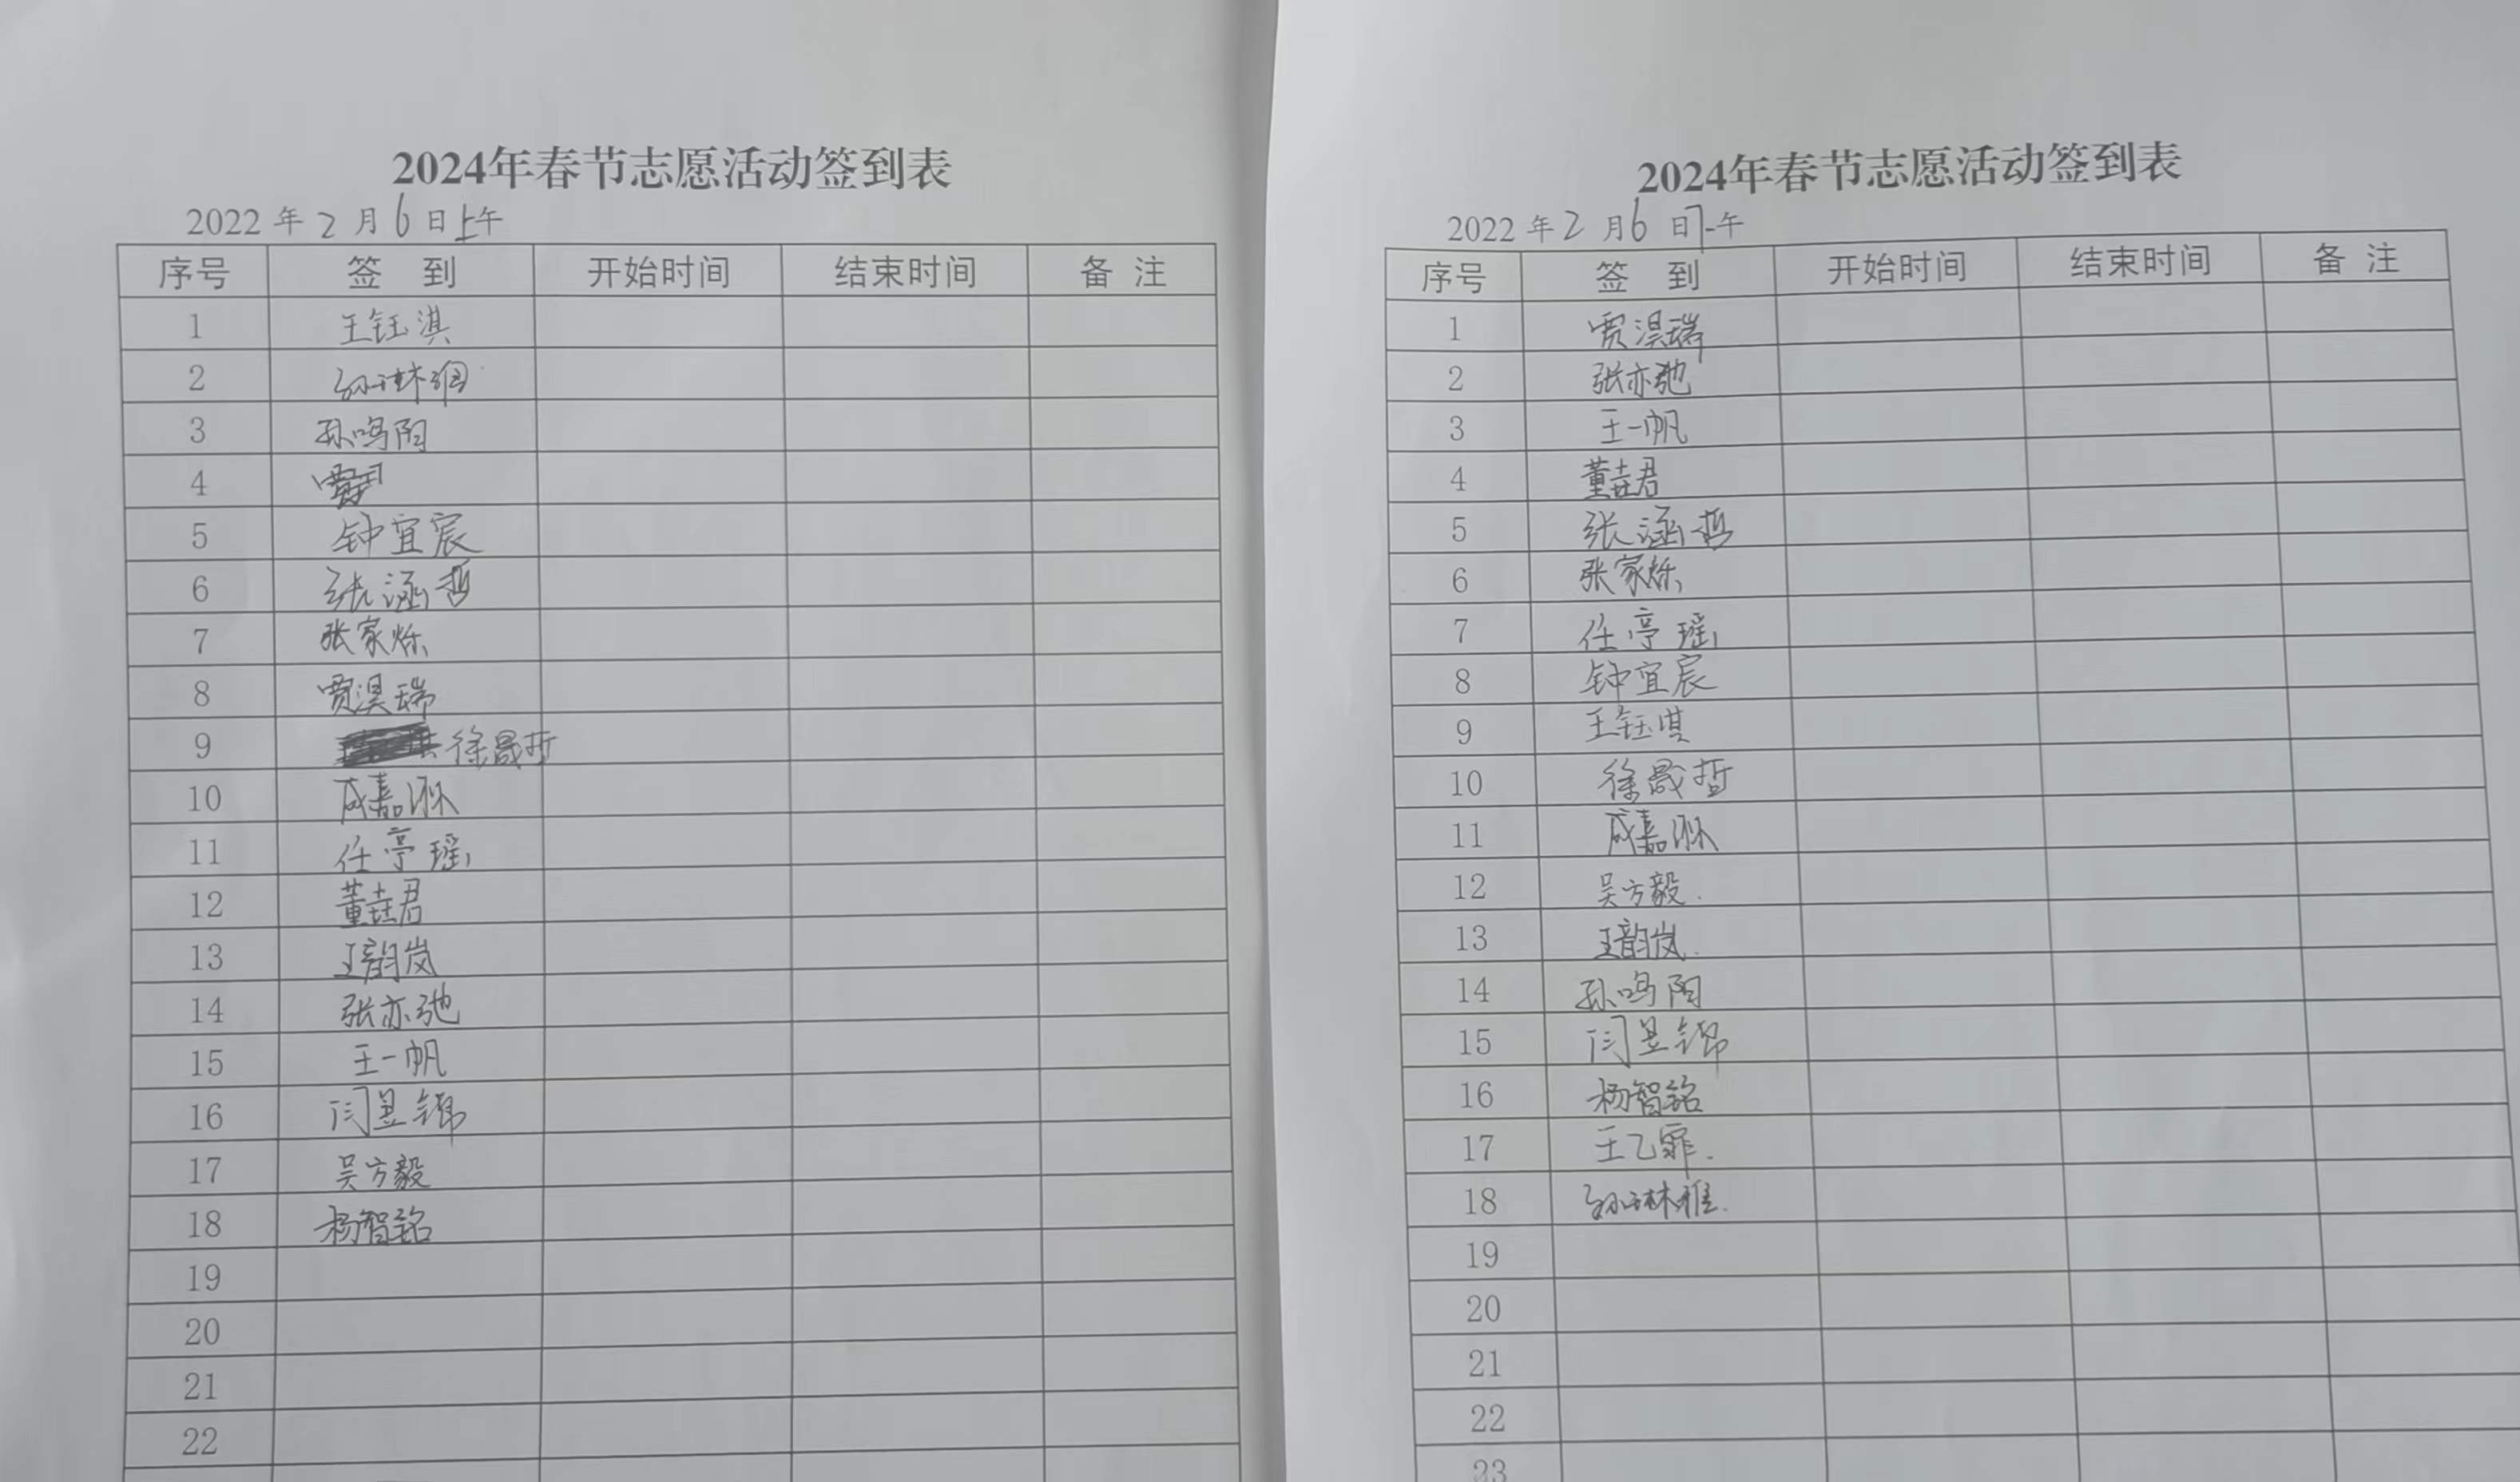 2024年春节志愿活动签到表
2022 年 2 月 6 日上午
序号 签 到 开始时间 结束时间 备 注
1 王钰淇
2 孙琳
3 孙鸣阳
4
5 钟宜宸
6 张涵哲
7 张家烁
8 贾淏瑞
9 徐晟哲
10 成嘉沐
11 任亭瑶
12 董垚君
13 王韵岚
14 张亦弛
15 王一帆
16 闫昱锦
17 吴方毅
18 杨智铭
19
20
21
22
2024年春节志愿活动签到表
2022 年 2 月 6 日下午
序号 签 到 开始时间 结束时间 备 注
1 贾淏瑞
2 张亦弛
3 王一帆
4 董垚君
5 张涵哲
6 张家烁
7 任亭瑶
8 钟宜宸
9 王钰淇
10 徐晟哲
11 成嘉沐
12 吴方毅.
13 王韵岚.
14 孙鸣阳
15 闫昱锦
16 杨智铭
17 王乙霏.
18 孙琳雅.
19
20
21
22
23